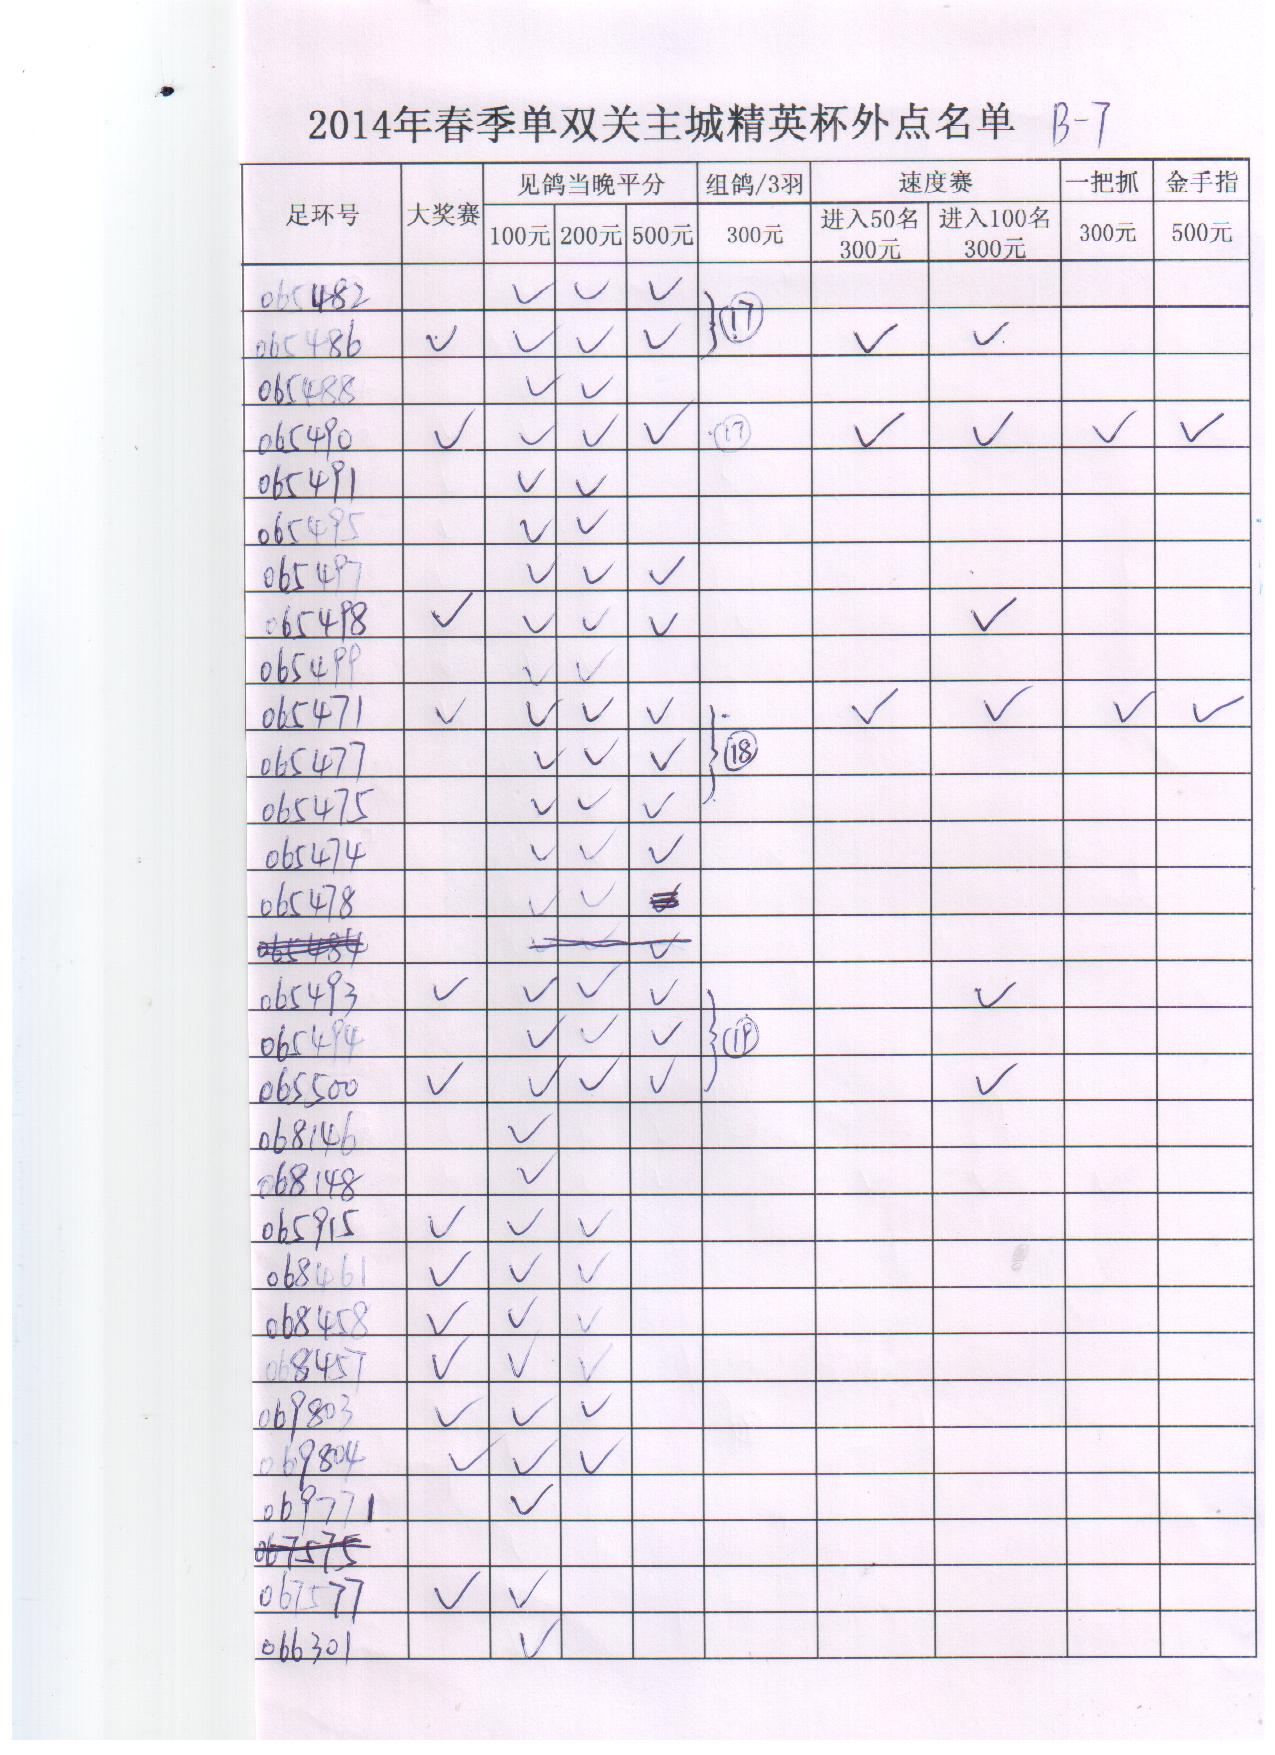 2014年春季单双关主城精英杯外点名单 B-7
足环号 大奖赛 见鸽当晚平分 组鸽/3羽 速度赛 一把抓 金手指
100元 200元 500元 300元 进入50名 300元 进入100名 300元 300元 500元
065482 ✓ ✓ ✓ ⑰
065486 ✓ ✓ ✓ ✓ ✓ ✓
065488 ✓ ✓
065490 ✓ ✓ ✓ ✓ ⑰ ✓ ✓ ✓ ✓
065491 ✓ ✓
065495 ✓ ✓
065497 ✓ ✓ ✓
065498 ✓ ✓ ✓ ✓ ✓
065499 ✓ ✓
065471 ✓ ✓ ✓ ✓ ✓ ✓ ✓ ✓
065477 ✓ ✓ ✓ ⑱
065475 ✓ ✓ ✓
065474 ✓ ✓ ✓
065478 ✓ ✓
065484 ✓ ✓ ✓
065493 ✓ ✓ ✓ ✓ ✓
065494 ✓ ✓ ✓ ⑲
065500 ✓ ✓ ✓ ✓ ✓
068146 ✓
068148 ✓
065915 ✓ ✓ ✓
068461 ✓ ✓ ✓
068458 ✓ ✓ ✓
068457 ✓ ✓ ✓
069803 ✓ ✓ ✓
069804 ✓ ✓ ✓
069771 ✓
067575
067577 ✓ ✓
066301 ✓